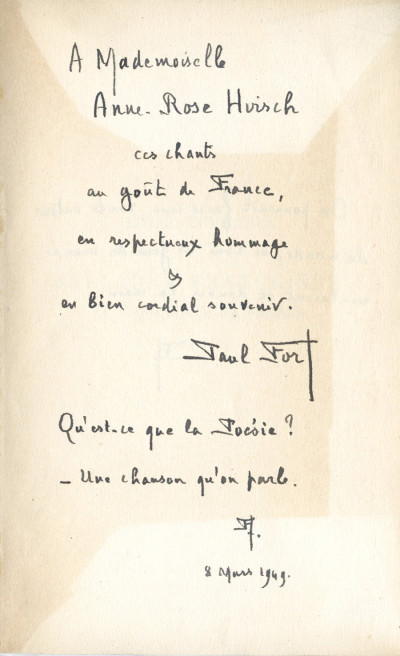 A Mademoiselle
Anne-Rose Hirsch
ces chants
au goût de France,
en respectueux hommage
&
en bien cordial souvenir.
Paul Fort
Qu'est-ce que la Poésie ?
– Une chanson qu'on parle.
PF.
8 Mars 1949.